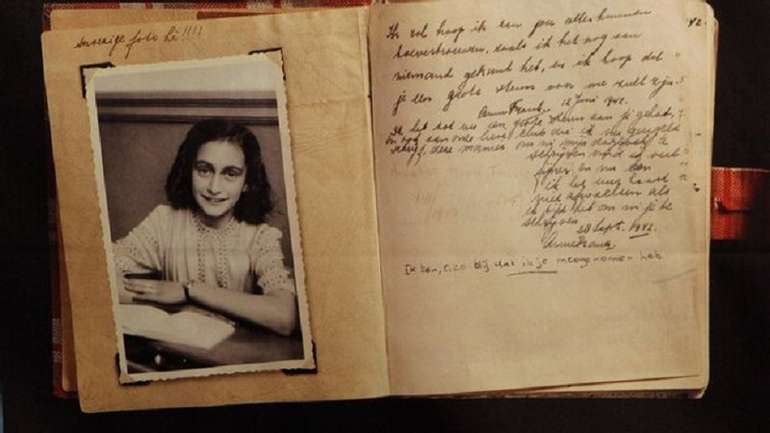 foto hè!!!!
Ik zal hoop ik aan jou alles kunnen
toevertrouwen, zoals ik het nog aan
niemand gekund heb, en ik hoop dat
je een grote steun voor me zult zijn.
Anne Frank. 12 Juni 1942.
Ik heb tot nu een grote steun aan je gehad,
en ook aan onze lieve club die ik nu geregeld
schrijf, deze manier om in mijn dagboek te
schrijven vind ik veel
fijner en nu kan
ik het uur haast
niet afwachten als
ik tijd heb om in je te
schrijven.
28 Sept. 1942.
Anne Frank.
Ik ben, o, zo blij dat ik je meegenomen heb